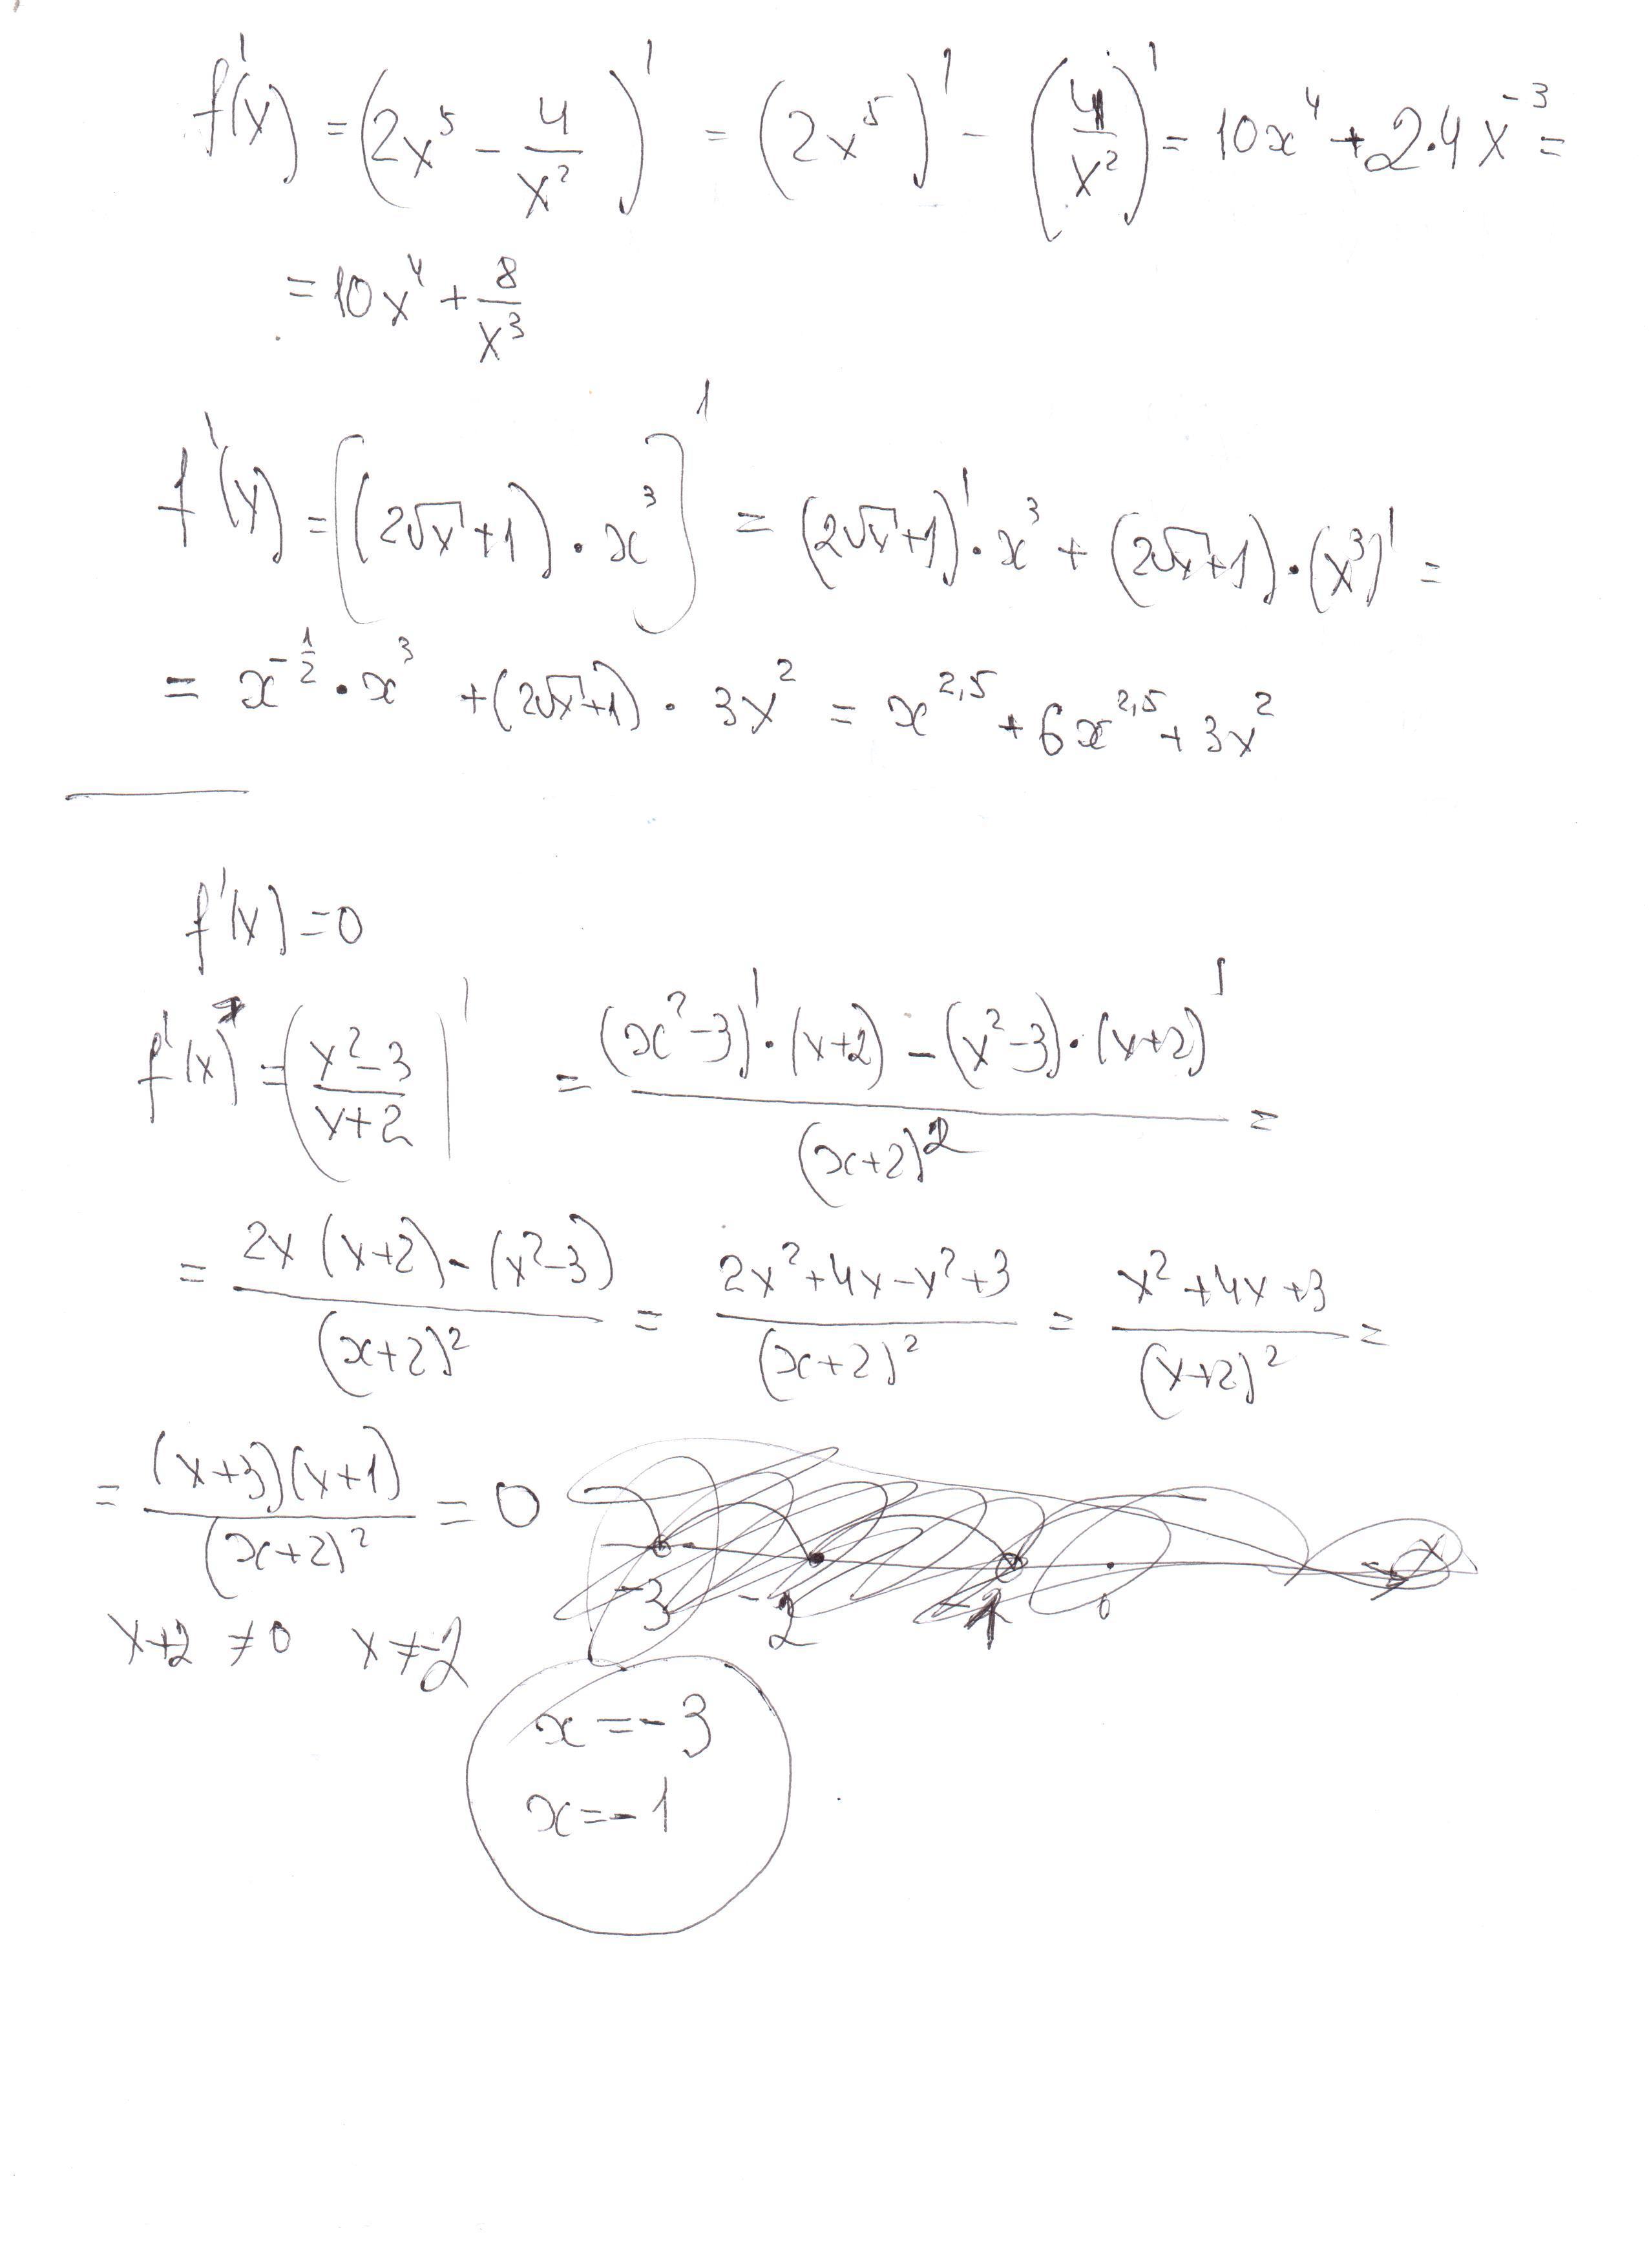 f'(x) = (2x⁵ - 4/x²)' = (2x⁵)' - (4/x²)' = 10x⁴ + 2·4x⁻³ =
= 10x⁴ + 8/x³
f'(x) = [(2√x+1)·x³]' = (2√x+1)'·x³ + (2√x+1)·(x³)' =
= x^(-1/2)·x³ + (2√x+1)·3x² = x^(2,5) + 6x^(2,5) + 3x²
f'(x) = 0
f'(x) = (x²-3/x+2)' = (x²-3)'·(x+2) - (x²-3)·(x+2)' / (x+2)² =
= 2x(x+2) - (x²-3) / (x+2)² = 2x²+4x-x²+3 / (x+2)² = x²+4x+3 / (x+2)² =
= (x+3)(x+1) / (x+2)² = 0
-3 -2 -1 0 x
x+2 ≠ 0 x ≠ -2
x = -3
x = -1